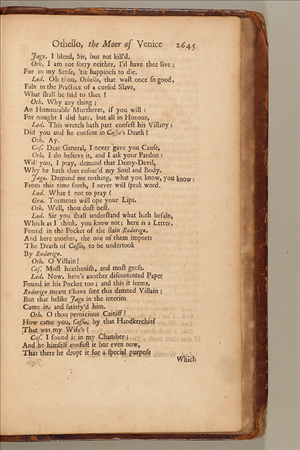 Othello, the Moor of Venice 2645
Jago. I bleed, Sir, but not kill'd.
Oth. I am not sorry neither, I'd have thee live;
For in my Sense, 'tis happiness to die.
Lod. Oh thou, Othello, that wast once so good,
Faln in the Practice of a cursed Slave,
What shall be said to thee?
Oth. Why any thing;
An Honourable Murtherer, if you will:
For nought I did hate, but all in Honour.
Lod. This wretch hath part confest his Villany:
Did you and he consent in Cassio's Death?
Oth. Ay.
Cas. Dear General, I never gave you Cause.
Oth. I do believe it, and I ask your Pardon:
Will you, I pray, demand that Demy-Devil,
Why he hath thus ensnar'd my Soul and Body.
Jago. Demand me nothing, what you know, you know:
From this time forth, I never will speak word.
Lod. What! not to pray?
Gra. Torments will ope your Lips.
Oth. Well, thou dost best.
Lod. Sir you shall understand what hath befaln,
Which as I think, you know not; here is a Letter,
Found in the Pocket of the slain Rodorigo,
And here another, the one of them imports
The Death of Cassio, to be undertook
By Rodorigo.
Oth. O Villain!
Cas. Most heathenish, and most gross.
Lod. Now, here's another discontented Paper
Found in his Pocket too; and this it seems,
Rodorigo meant t'have sent this damned Villain;
But that belike Jago in the interim
Came in, and satisfy'd him.
Oth. O thou pernicious Caitiff!
How came you, Cassio, by that Handkerchief
That was my Wife's?
Cas. I found it in my Chamber;
And he himself confest it but even now,
That there he dropt it for a special purpose
Which